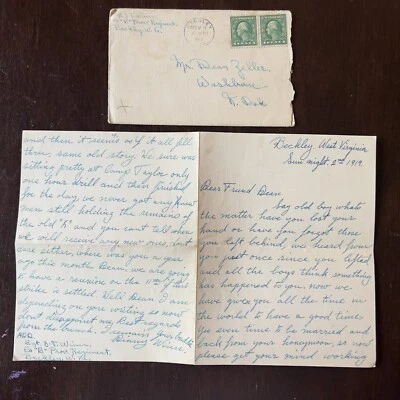 Co "B" Prov. Regiment.
Beckley W. Va.
BECKLEY
Mr. Dean Zeller
Washburn
N. Dak
Beckley, West Virginia
Sun night. 2nd 1919.
Dear Friend Dean
Say old boy whats
the matter have you lost your
hand or have you forgot those
you left behind, we heard from
you just once since you left
and all the boys think something
has happened to you. now we
have given you all the time in
the world to have a good time
Yes even time to be married and
back from your honeymoon, so now
please get your mind working
and then it seems as if it all fell
thru, same old story. We sure was
sitting pretty at Camp Taylor only
one hour drill and then finished
for the day, we never got any
men still holding the remains of
the old "K" and you cant tell when
we will receive any new ones, dont
sure either, where was you a year
ago this month Dean, we are going
to have a reunion on the 11th if this
strike is settled. Well Dean I am
depending on you writing so now
dont disappoint me, Best regards
from the bunch. I remains your
ADD.
Co "B" Prov. Regiment.
Beckley W. Va.